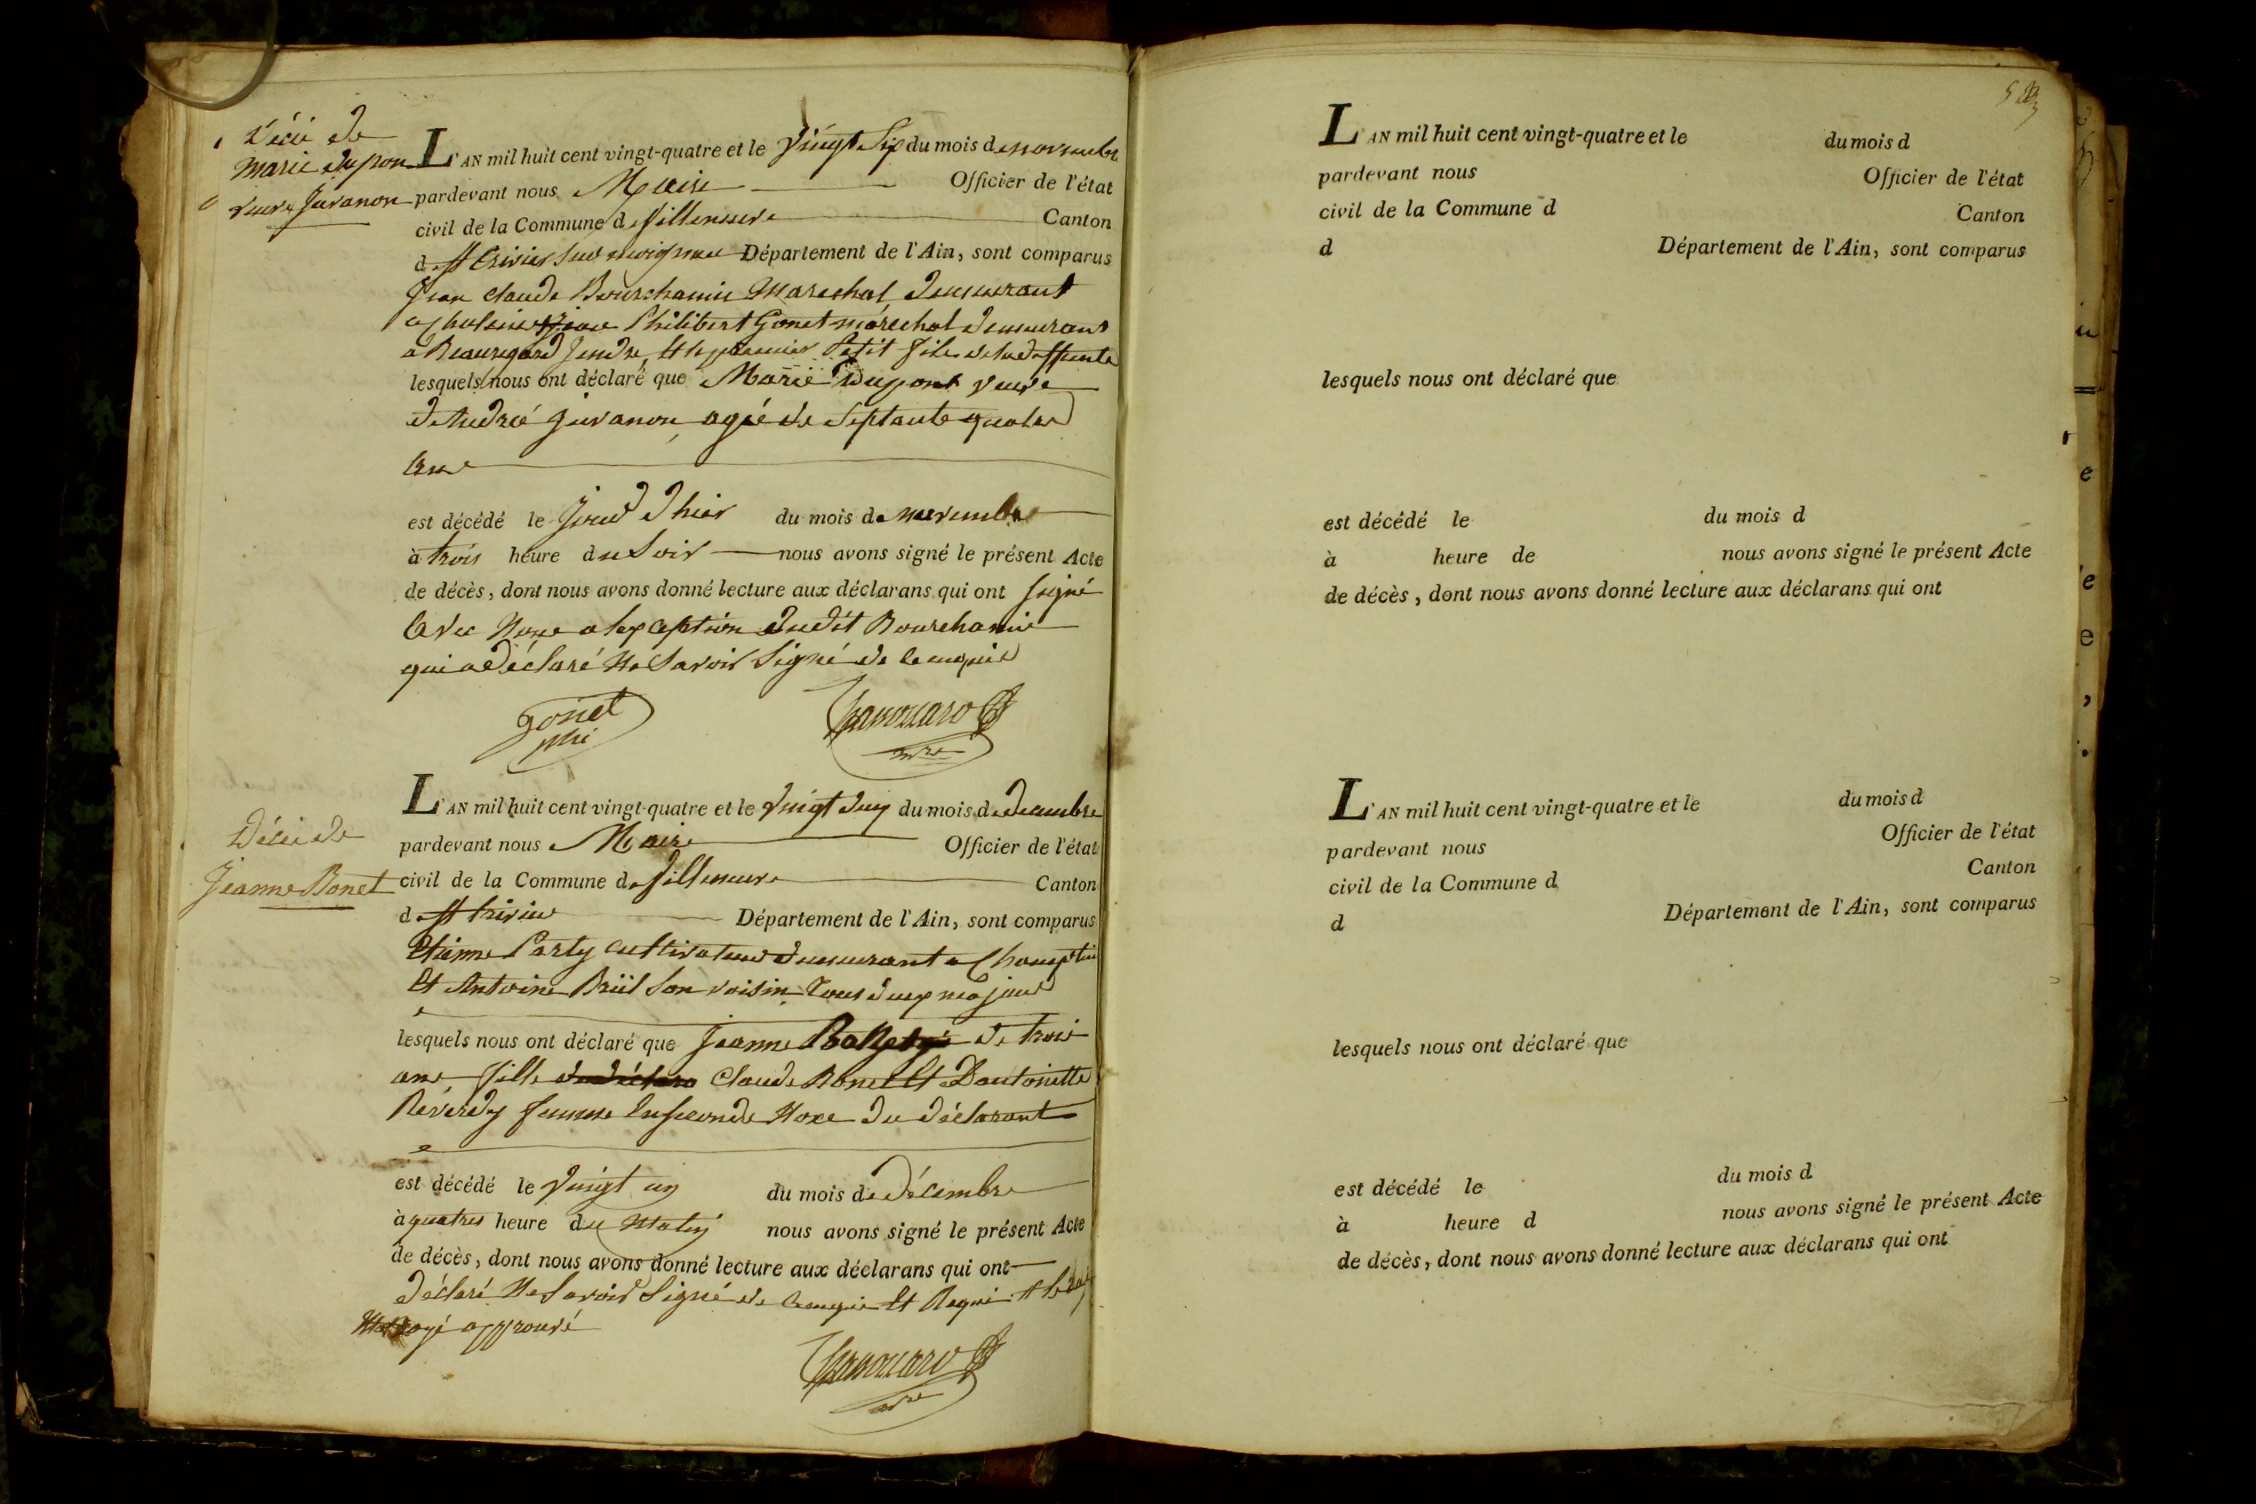 Décé de
Marie dupon
veuve Juvanon
L'AN mil huit cent vingt-quatre et le vingt Six du mois de novembre
pardevant nous Maire Officier de l'état
civil de la Commune de Villeneuve Canton
de St trivier Sur moignau Département de l'Ain, sont comparus
Jean claude Bourchanin Marechal demeurant
a Philibert Gonet maréchal demeurant
a Beauregard Jendre Et le premier Petit fils de la deffunte
lesquels nous ont déclaré que Marie Dupont veuve
d'Andrée Juvanon, agée de Septante quatre
Ans
est décédé le Jour d'hier du mois de novembre
à trois heure du Soir nous avons signé le présent Acte
de décès, dont nous avons donné lecture aux déclarans qui ont signé
Avec Nous a lexception dudit Bourchanin
qui a déclaré Ne Savoir Signé de ce enquis
gonet
phi
mre
L'AN mil huit cent vingt-quatre et le vingt deux du mois de decembre
pardevant nous Maire Officier de l'état
Décé de
Jeanne Bonet
civil de la Commune de Villeneuve Canton
de St trivier Département de l'Ain, sont comparus
Etienne Party cultivateur demeurant a
Et Antoine Brüil Son voisin tous deux majeurs
lesquels nous ont déclaré que Jeanne de trois
ans fille Claude Bonet Et Dantoinette
Réverdy femme En Seconde Noxe du déclarant
est décédé le vingt un du mois de décembre
à quatres heure du Matin nous avons signé le présent Acte
de décès, dont nous avons donné lecture aux déclarans qui ont
déclaré Ne Savoir Signé de Et Requi
approuvé
mre
L'AN mil huit cent vingt-quatre et le du mois d
pardevant nous Officier de l'état
civil de la Commune d Canton
d Département de l'Ain, sont comparus
lesquels nous ont déclaré que
est décédé le du mois d
à heure de nous avons signé le présent Acte
de décès, dont nous avons donné lecture aux déclarans qui ont
L'AN mil huit cent vingt-quatre et le du mois d
pardevant nous Officier de l'état
civil de la Commune d Canton
d Département de l'Ain, sont comparus
lesquels nous ont déclaré que
est décédé le du mois d
à heure d nous avons signé le présent Acte
de décès, dont nous avons donné lecture aux déclarans qui ont